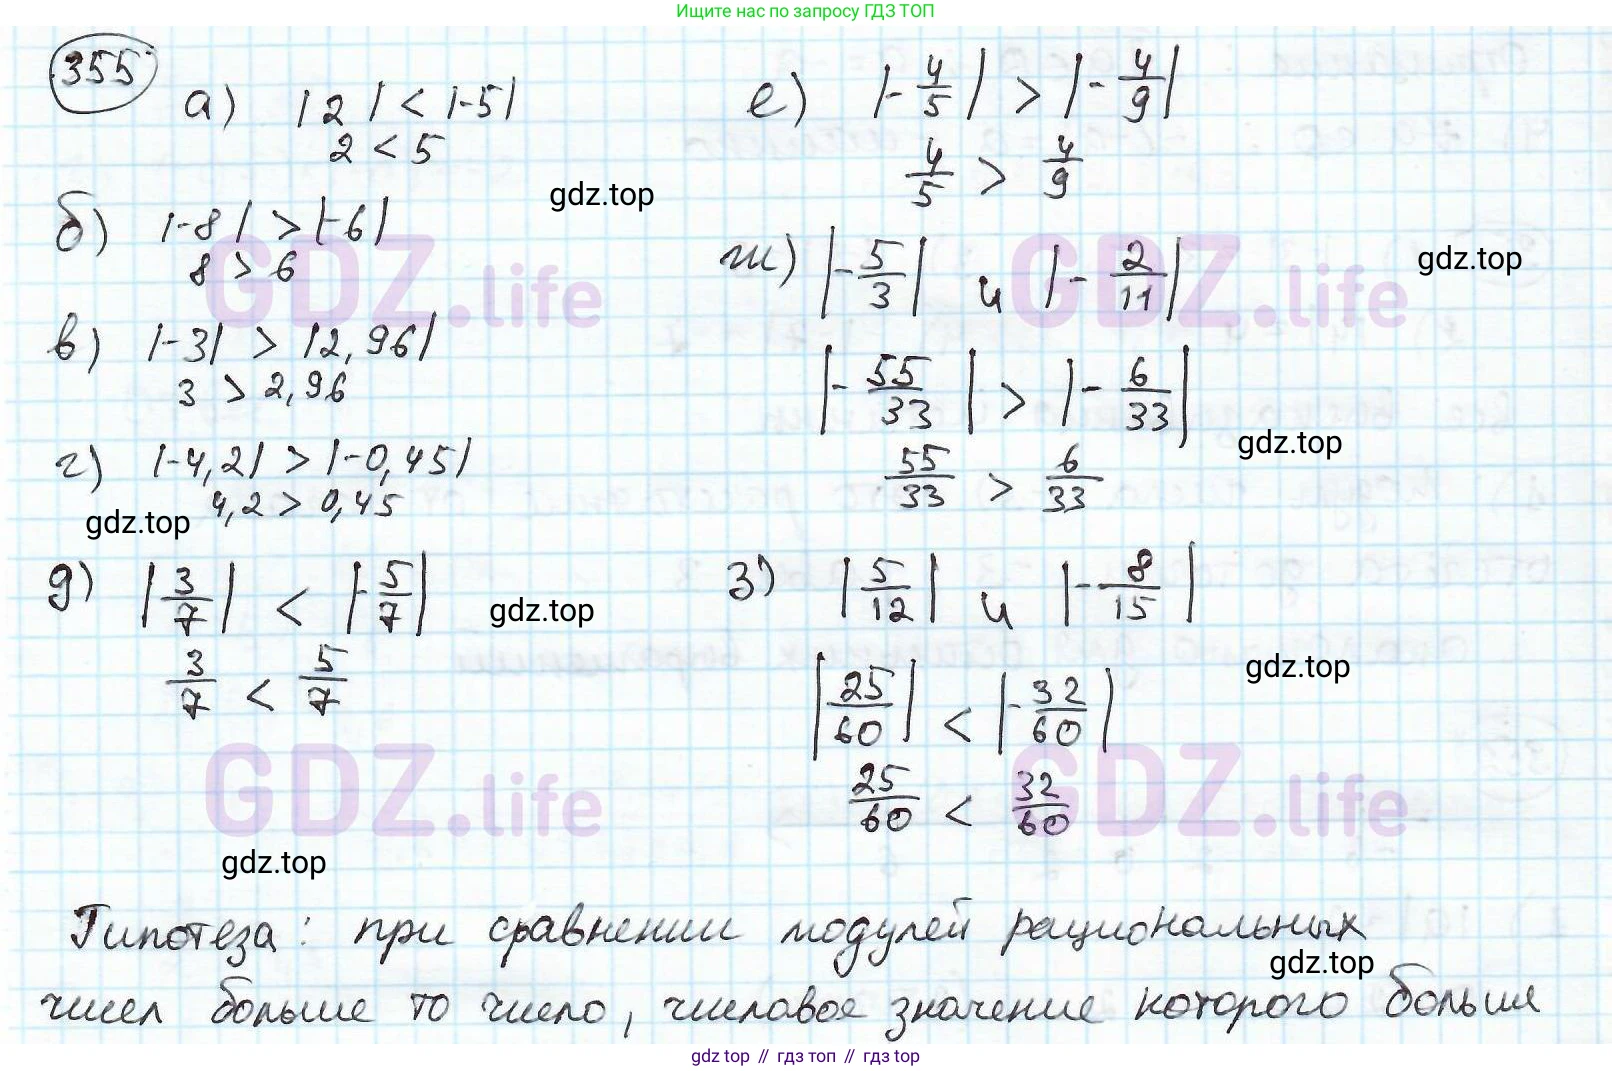 Ищите нас по запросу ГДЗ ТОП
355
а) |2| < |-5|
2 < 5
gdz.top
б) |-8| > |-6|
8 > 6
GDZ.life
в) |-3| > |2,96|
3 > 2,96
г) |-4,2| > |-0,45|
4,2 > 0,45
gdz.top
д) |3/7| < |-5/7|
gdz.top
3/7 < 5/7
GDZ.life
gdz.top
е) |-4/5| > |-4/9|
4/5 > 4/9
ж) |-5/3| и |-2/11|
gdz.top
GDZ.life
|-55/33| > |-6/33|
gdz.top
55/33 > 6/33
з) |5/12| и |-8/15|
gdz.top
|25/60| < |-32/60|
25/60 < 32/60
GDZ.life
Гипотеза: при сравнении модулей рациональных
gdz.top
чисел больше то число, числовое значение которого больше
gdz top // гдз топ // gdz top